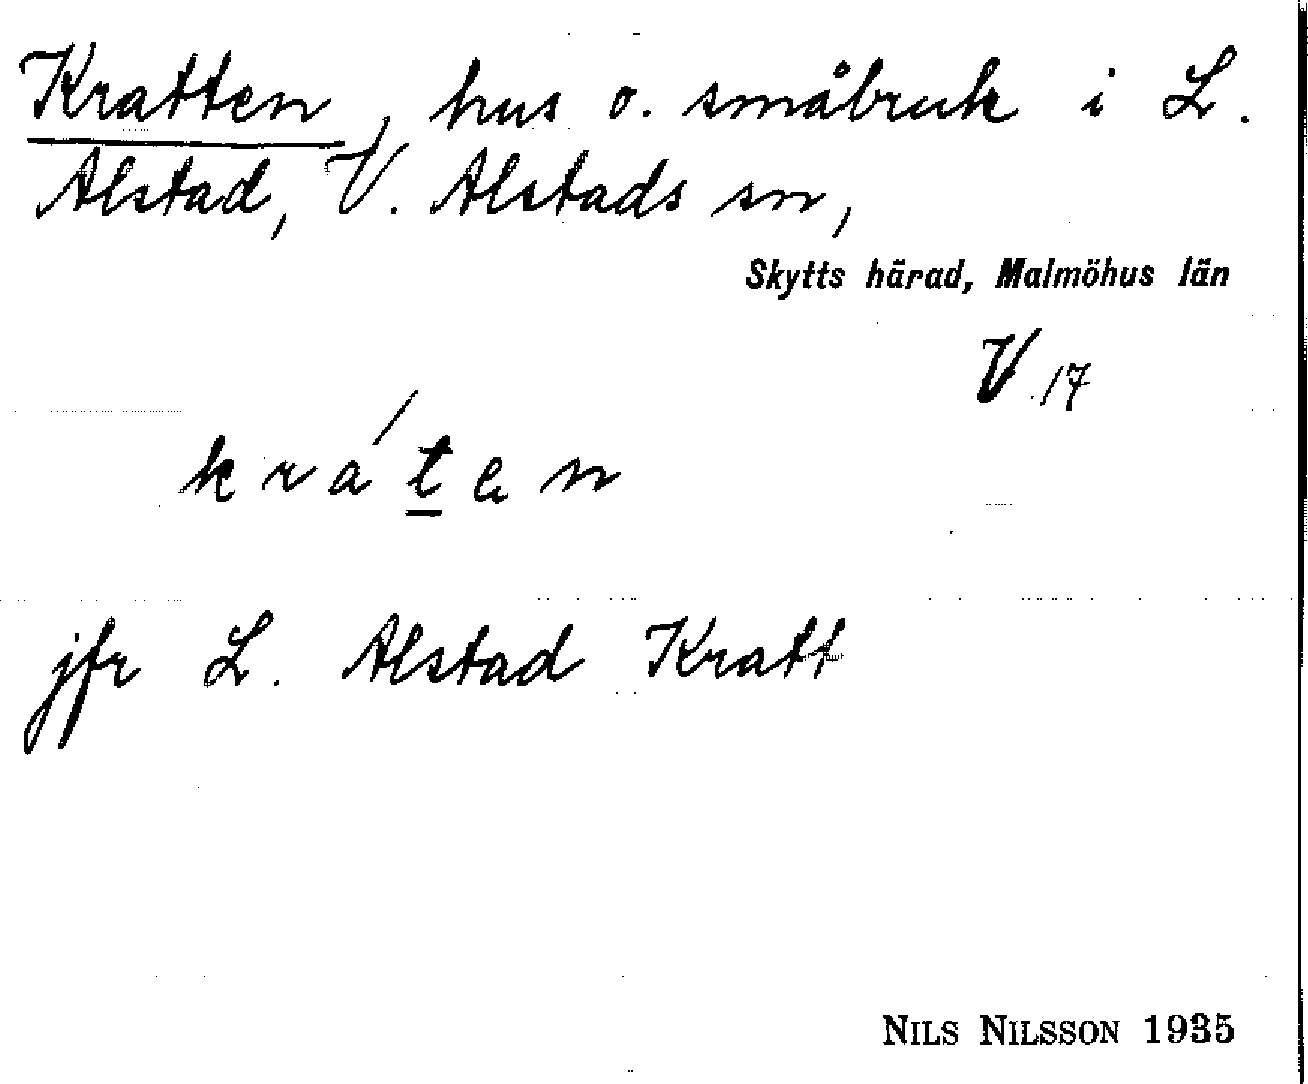 Kratten, hus o. småbruk i L.
Alstad, V. Alstads sn,
Skytts härad, Malmöhus län
V 17
kráten
jfr L. Alstad Kratt
NILS NILSSON 1935